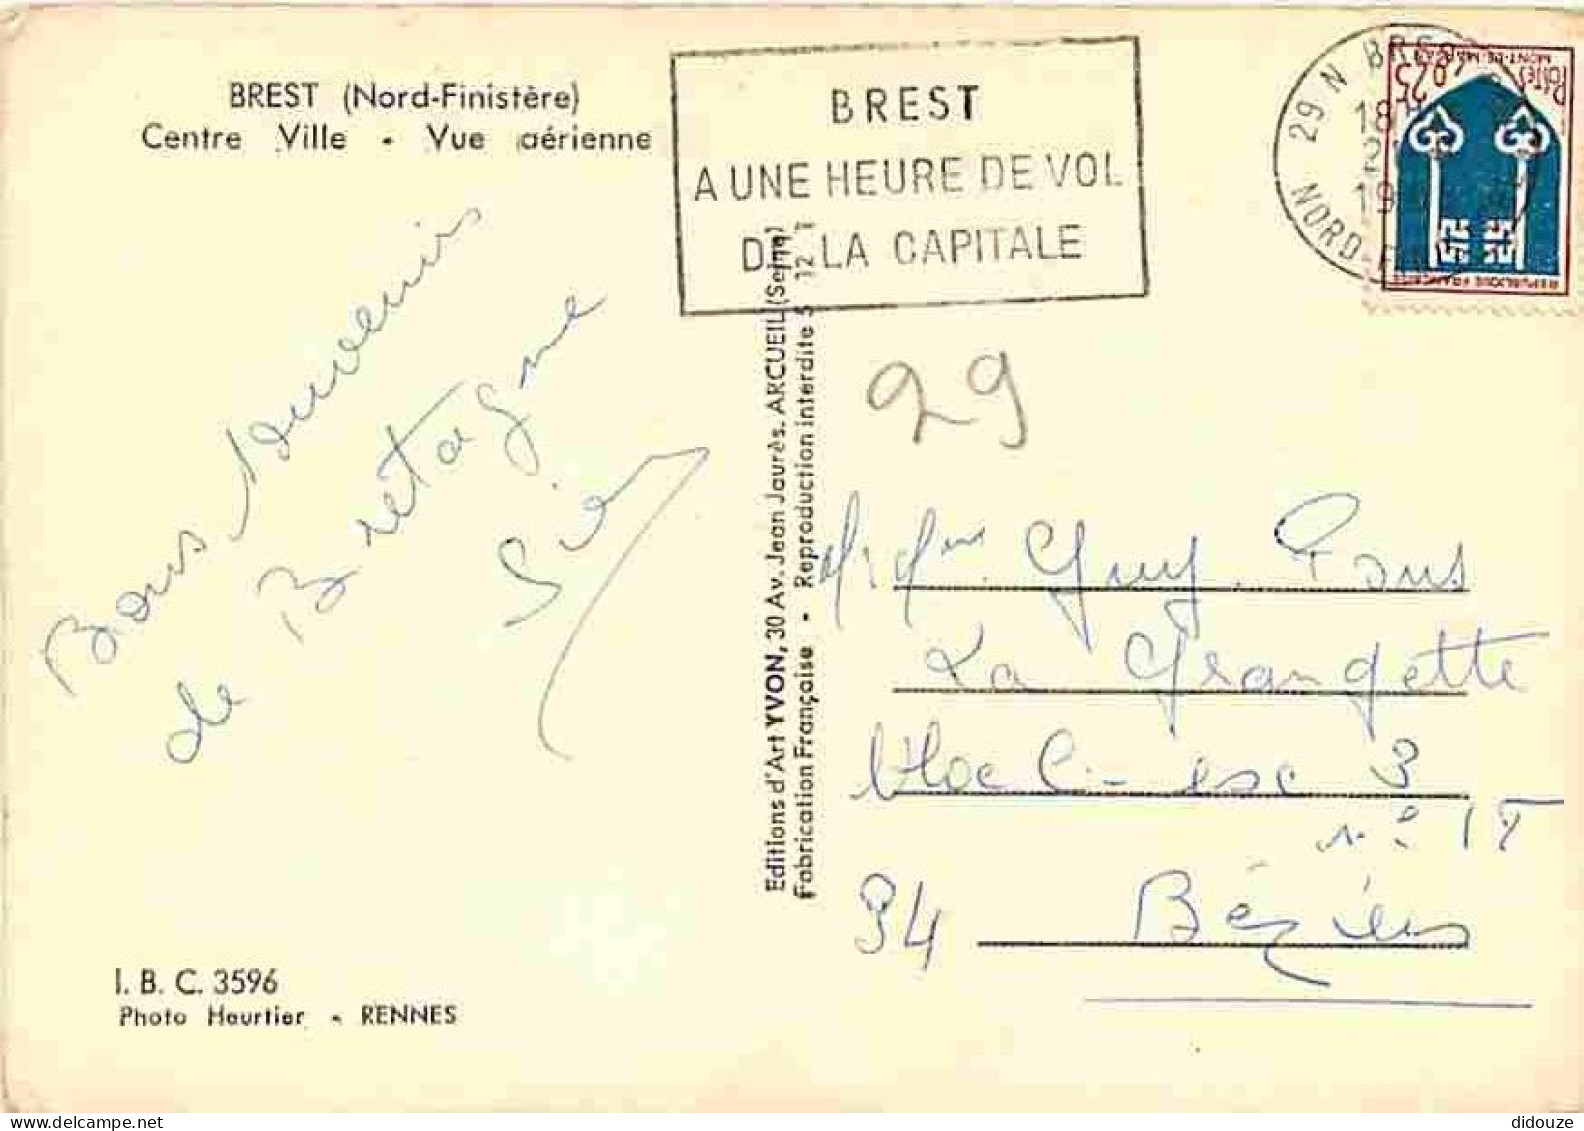 BREST (Nord-Finistère)
Centre Ville - Vue aérienne
BREST
A UNE HEURE DE VOL
DE LA CAPITALE
29 N BREST
18H
19
NORD-FINISTERE
Postes
0,25
MONT-DE-MARSAN
REPUBLIQUE FRANÇAISE
Bons souvenirs
de Bretagne
29
Editions d'Art YVON, 30 Av. Jean Jaurès. ARCUEIL (Seine)
Fabrication Française - Reproduction interdite 5 12 1
Guy Pons
La Grangette
bloc C - esc 3
n°
34 Béziers
I. B. C. 3596
Photo Heurtier - RENNES
didouze